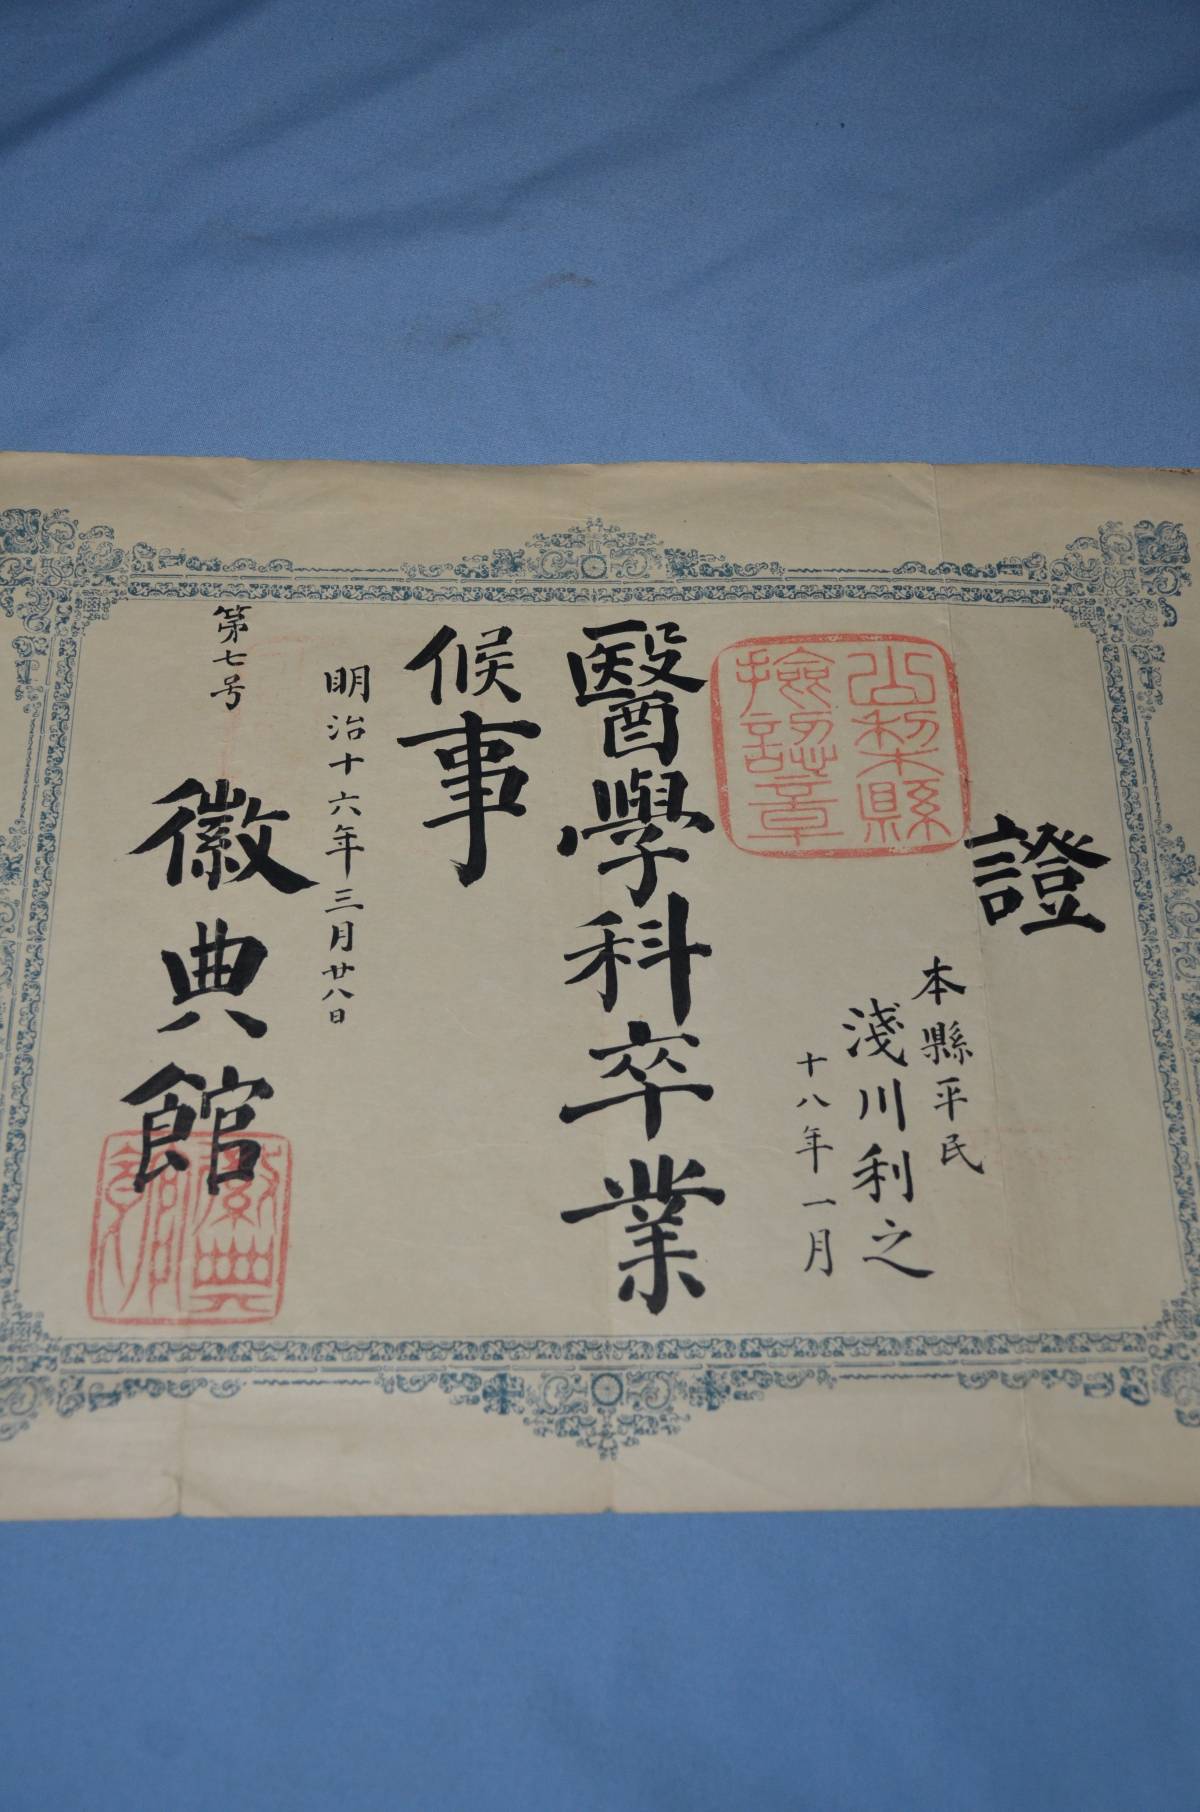 證
山梨縣
撿認章
本縣平民
淺川利之
十八年一月
醫學科卒業
候事
明治十六年三月廿八日
徽典館
徽典
館印
第七号